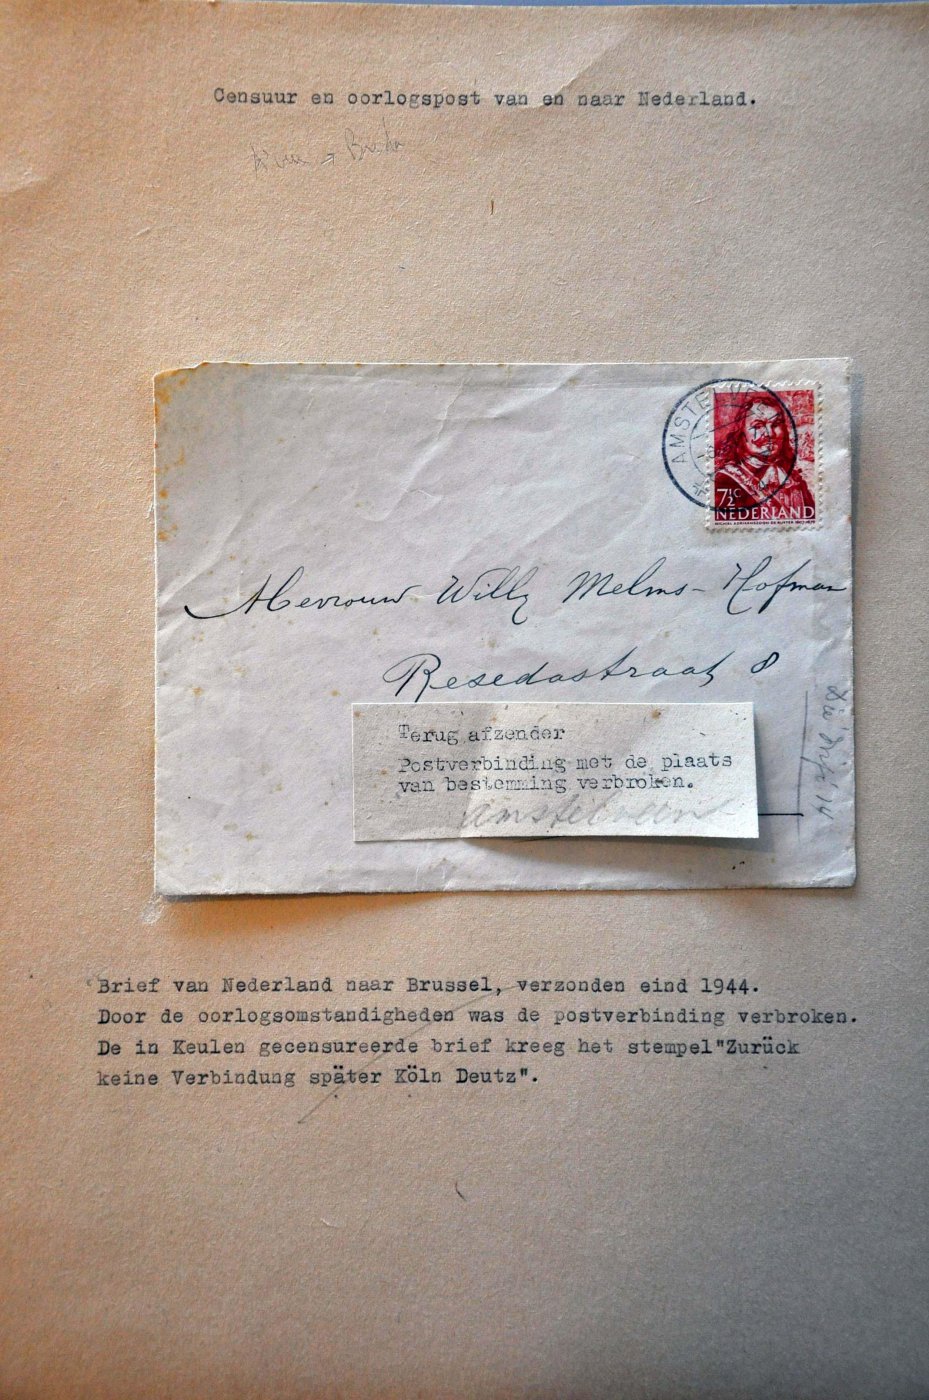 Censuur en oorlogspost van en naar Nederland.
AMSTELVE
7½c
NEDERLAND
MICHIEL ADRIAENSZOON DE RUYTER 1607-1676
Mevrouw Willy Melms-Hofman
Resedastraat 8
Terug afzender
Postverbinding met de plaats
van bestemming verbroken.
Amstelveen
Brief van Nederland naar Brussel, verzonden eind 1944.
Door de oorlogsomstandigheden was de postverbinding verbroken.
De in Keulen gecensureerde brief kreeg het stempel"Zurück
keine Verbindung später Köln Deutz".